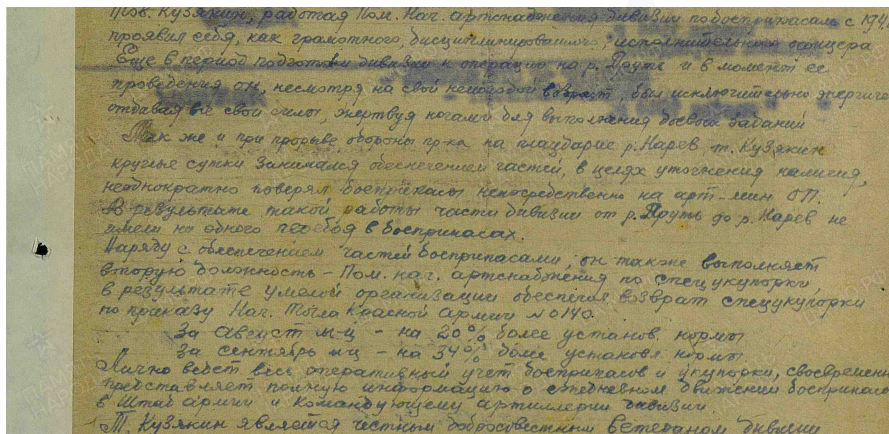 Тов. Кузякин, работая Пом. Нач. артснабжения дивизии по боеприпасам с 194
проявил себя, как грамотного, дисциплинированного, исполнительного офицера
Еще в период подготовки дивизии к операции на р. Друть и в момент ее
проведения он, несмотря на свой немолодой возраст, был исключительно энергичен
отдавая все свои силы, жертвуя ночами для выполнения боевых заданий
Так же и при прорыве обороны пр-ка на плацдарме р. Нарев т. Кузякин
круглые сутки занимался обеспечением частей, в целях уточнения наличия,
неоднократно поверял боеприпасы непосредственно на арт-мин ОП.
В результате такой работы части дивизии от р. Друть до р. Нарев не
имели ни одного перебоя в боеприпасах.
Наряду с обеспечением частей боеприпасами, он также выполняет
вторую должность - Пом. нач. артснабжения по спецукупорки,
в результате умелой организации обеспечил возврат спецукупорки
по приказу Нач. Тыла Красной Армии № 0140.
За август м-ц - на 20% более установ. нормы
За сентябрь м-ц - на 34% более установл нормы
Лично ведет весь оперативный учет боеприпасов и укупорки, своевремен
представляет полную информацию о ежедневном движении боеприпасов
в Штаб армии и Командующему артиллерии дивизии
Т. Кузякин является честным добросовестным ветераном дивизии
ПАМЯТЬ НАРОДА